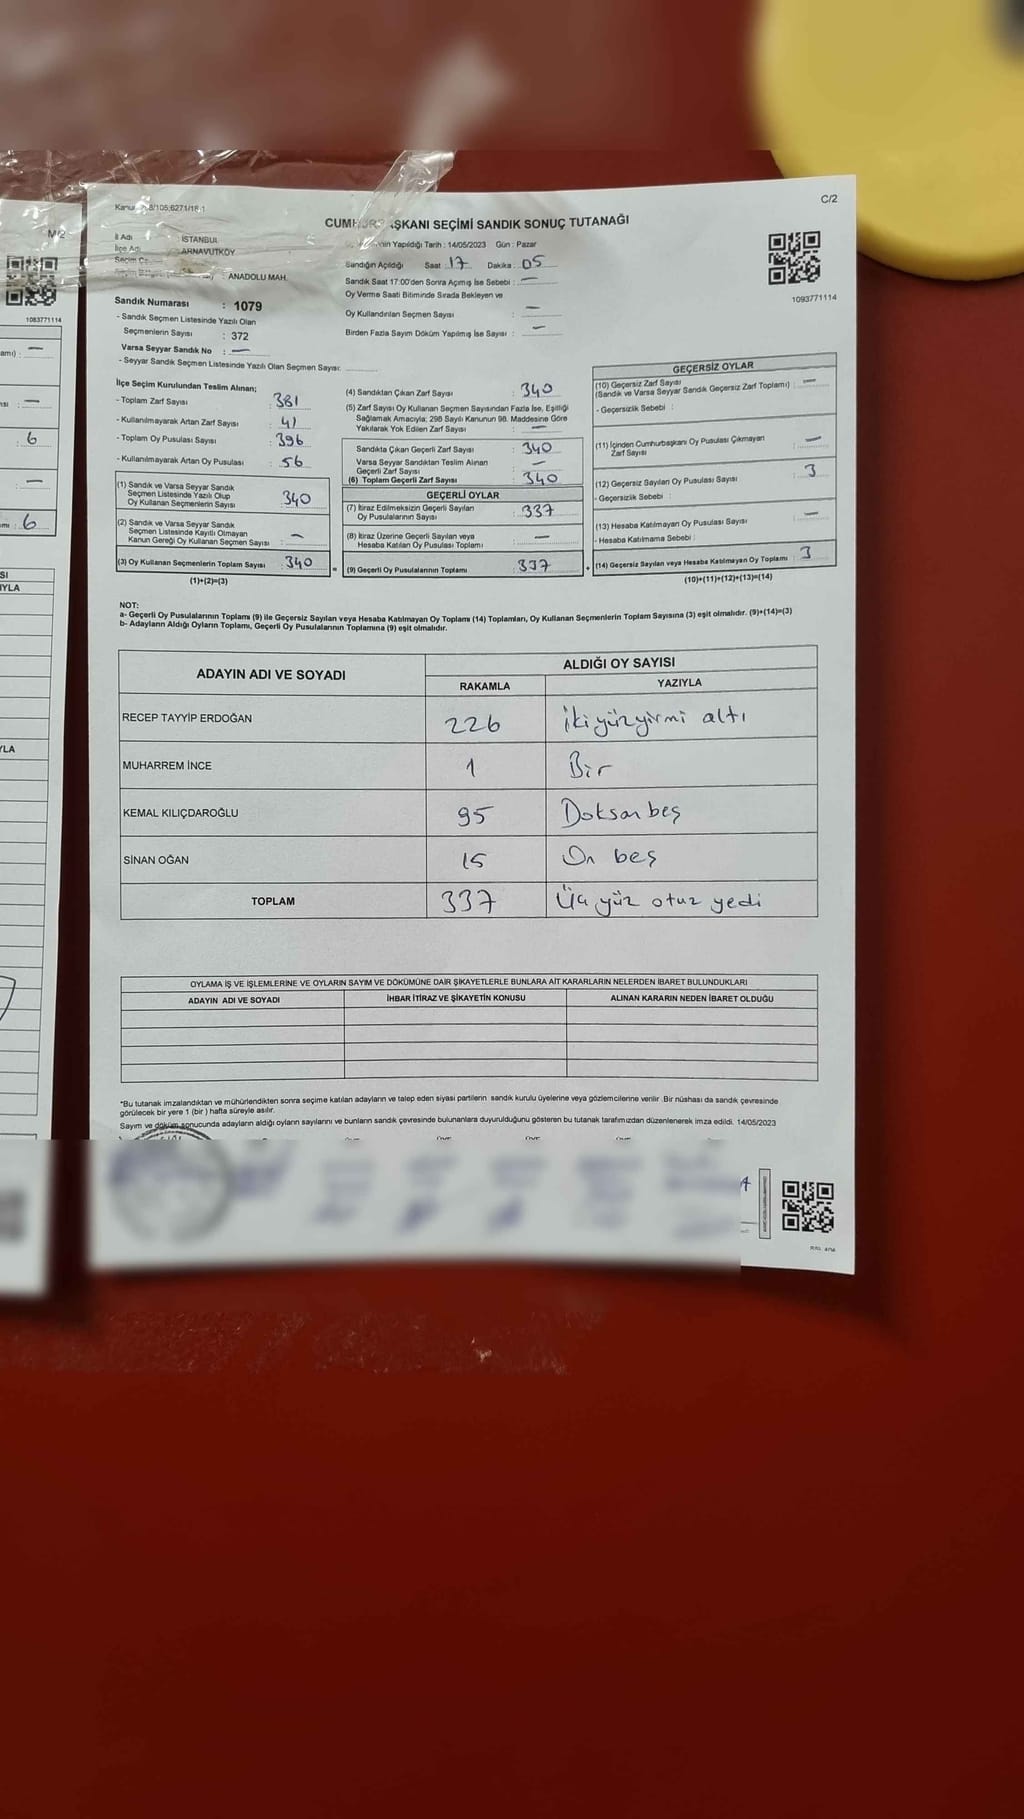 C/2
8/105;6271/18-1
CUMHUR AŞKANI SEÇİMİ SANDIK SONUÇ TUTANAĞI
İl Adı : İSTANBUL
İlçe Adı : ARNAVUTKÖY
: ANADOLU MAH.
Sandık Numarası : 1079
- Sandık Seçmen Listesinde Yazılı Olan
Seçmenlerin Sayısı : 372
Varsa Seyyar Sandık No : —
- Seyyar Sandık Seçmen Listesinde Yazılı Olan Seçmen Sayısı:
Yapıldığı Tarih : 14/05/2023 Gün : Pazar
Sandığın Açıldığı Saat : 17 Dakika : 05
Sandık Saat 17:00'den Sonra Açımış İse Sebebi : —
Oy Verme Saati Bitiminde Sırada Bekleyen ve
Oy Kullandırılan Seçmen Sayısı : —
Birden Fazla Sayım Döküm Yapılmış İse Sayısı : —
1093771114
İlçe Seçim Kurulundan Teslim Alınan;
- Toplam Zarf Sayısı : 381
- Kullanılmayarak Artan Zarf Sayısı : 41
- Toplam Oy Pusulası Sayısı : 396
- Kullanılmayarak Artan Oy Pusulası : 56
(1) Sandık ve Varsa Seyyar Sandık
Seçmen Listesinde Yazılı Olup
Oy Kullanan Seçmenlerin Sayısı : 340
(2) Sandık ve Varsa Seyyar Sandık
Seçmen Listesinde Kayıtlı Olmayan
Kanun Gereği Oy Kullanan Seçmen Sayısı : —
(3) Oy Kullanan Seçmenlerin Toplam Sayısı : 340
(1)+(2)=(3)
(4) Sandıktan Çıkan Zarf Sayısı : 340
(5) Zarf Sayısı Oy Kullanan Seçmen Sayısından Fazla İse, Eşitliği
Sağlamak Amacıyla; 298 Sayılı Kanunun 98. Maddesine Göre
Yakılarak Yok Edilen Zarf Sayısı : —
Sandıkta Çıkan Geçerli Zarf Sayısı : 340
Varsa Seyyar Sandıktan Teslim Alınan
Geçerli Zarf Sayısı : —
(6) Toplam Geçerli Zarf Sayısı : 340
GEÇERLİ OYLAR
(7) İtiraz Edilmeksizin Geçerli Sayılan
Oy Pusulalarının Sayısı : 337
(8) İtiraz Üzerine Geçerli Sayılan veya
Hesaba Katılan Oy Pusulası Toplamı : —
(9) Geçerli Oy Pusulalarının Toplamı : 337
GEÇERSİZ OYLAR
(10) Geçersiz Zarf Sayısı
(Sandık ve Varsa Seyyar Sandık Geçersiz Zarf Toplamı) : —
- Geçersizlik Sebebi :
(11) İçinden Cumhurbaşkanı Oy Pusulası Çıkmayan
Zarf Sayısı : —
(12) Geçersiz Sayılan Oy Pusulası Sayısı : 3
- Geçersizlik Sebebi :
(13) Hesaba Katılmayan Oy Pusulası Sayısı : —
- Hesaba Katılmama Sebebi :
(14) Geçersiz Sayılan veya Hesaba Katılmayan Oy Toplamı : 3
(10)+(11)+(12)+(13)=(14)
NOT:
a- Geçerli Oy Pusulalarının Toplamı (9) ile Geçersiz Sayılan veya Hesaba Katılmayan Oy Toplamı (14) Toplamları, Oy Kullanan Seçmenlerin Toplam Sayısına (3) eşit olmalıdır. (9)+(14)=(3)
b- Adayların Aldığı Oyların Toplamı, Geçerli Oy Pusulalarının Toplamına (9) eşit olmalıdır.
ADAYIN ADI VE SOYADI ALDIĞI OY SAYISI
RAKAMLA YAZIYLA
RECEP TAYYİP ERDOĞAN 226 İkiyüzyirmi altı
MUHARREM İNCE 1 Bir
KEMAL KILIÇDAROĞLU 95 Doksan beş
SİNAN OĞAN 15 On beş
TOPLAM 337 Üç yüz otuz yedi
OYLAMA İŞ VE İŞLEMLERİNE VE OYLARIN SAYIM VE DÖKÜMÜNE DAİR ŞİKAYETLERLE BUNLARA AİT KARARLARIN NELERDEN İBARET BULUNDUKLARI
ADAYIN ADI VE SOYADI İHBAR İTİRAZ VE ŞİKAYETİN KONUSU ALINAN KARARIN NEDEN İBARET OLDUĞU
*Bu tutanak imzalandıktan ve mühürlendikten sonra seçime katılan adayların ve talep eden siyasi partilerin sandık kurulu üyelerine veya gözlemcilerine verilir. Bir nüshası da sandık çevresinde
görülecek bir yere 1 (bir ) hafta süreyle asılır.
Sayım ve döküm sonucunda adayların aldığı oyların sayılarını ve bunların sandık çevresinde bulunanlara duyurulduğunu gösteren bu tutanak tarafımızdan düzenlenerek imza edildi. 14/05/2023
M/2
1083771114
6
6